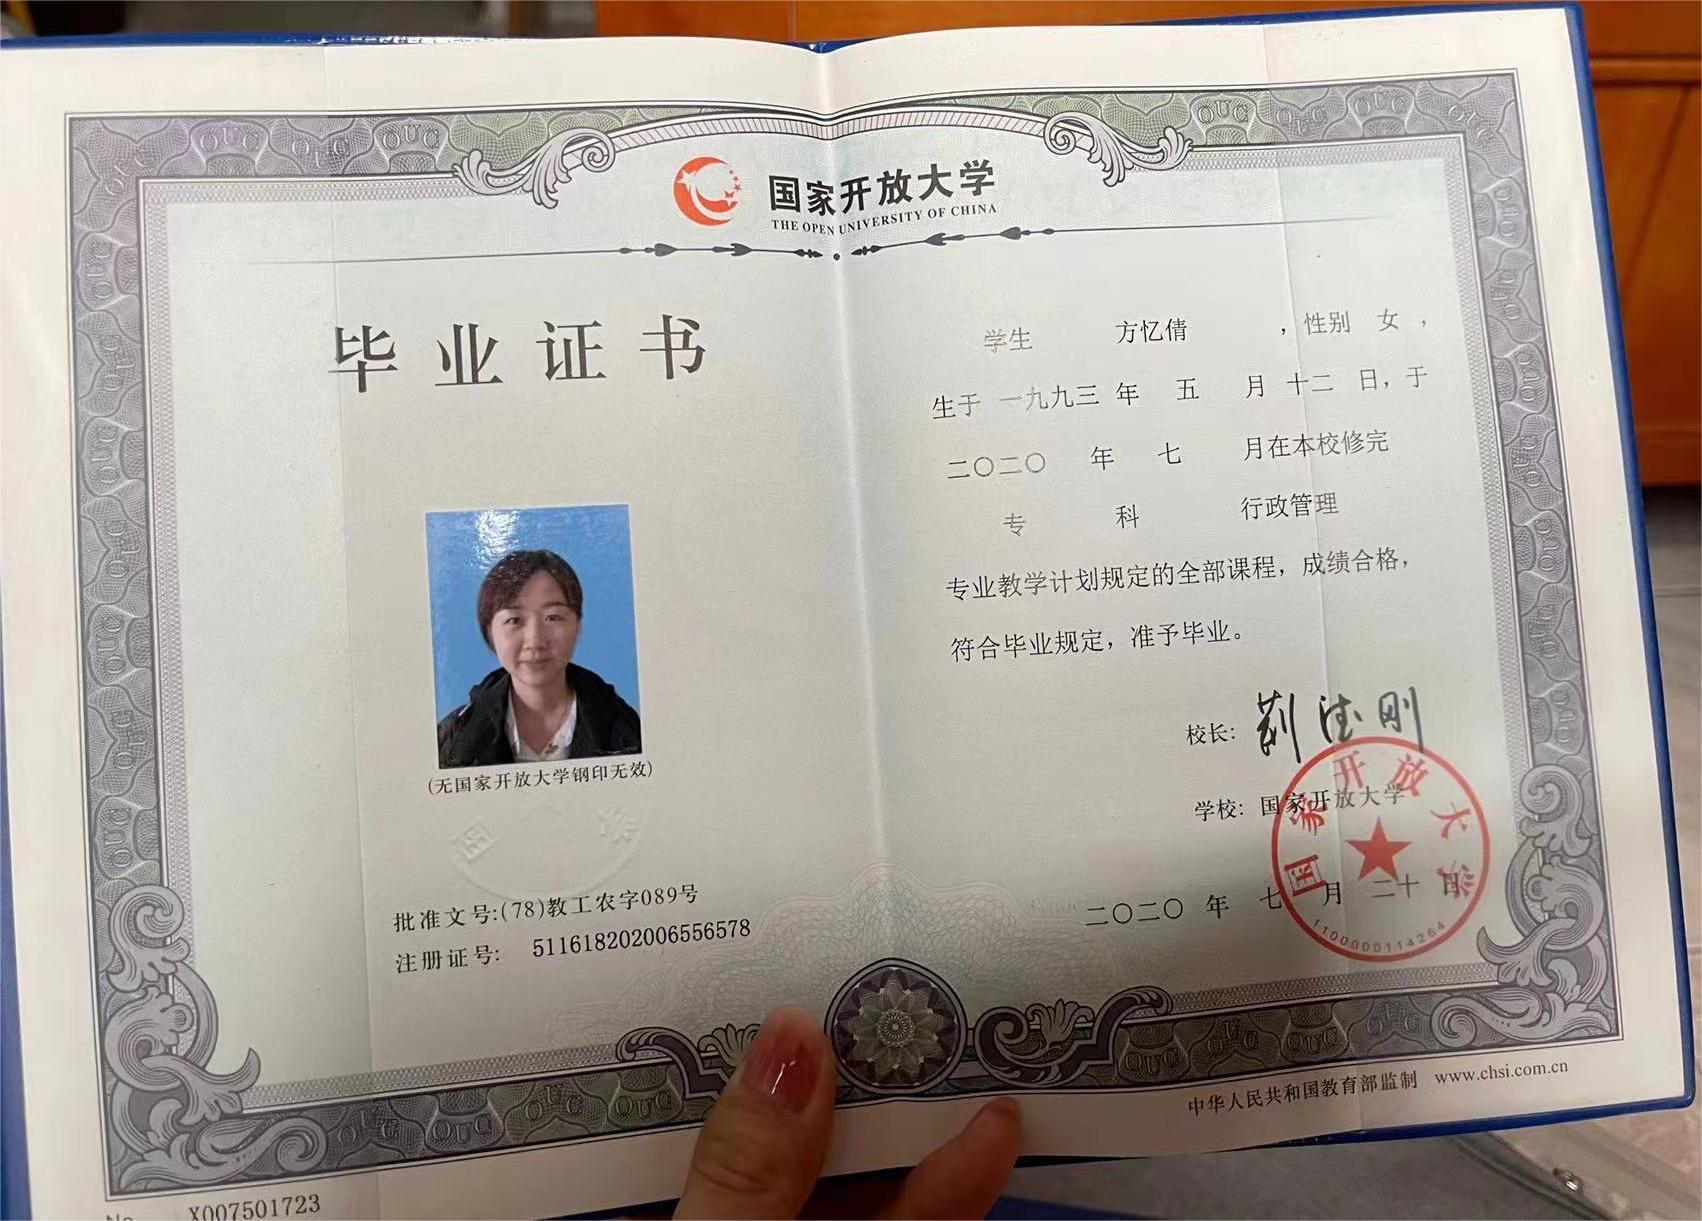 国家开放大学
THE OPEN UNIVERSITY OF CHINA
毕业证书
(无国家开放大学钢印无效)
批准文号:(78)教工农字089号
注册证号: 511618202006556578
No. X007501723
学生 方忆倩 ，性别 女 ，
生于 一九九三 年 五 月 十二 日，于
二〇二〇 年 七 月在本校修完
专 科 行政管理
专业教学计划规定的全部课程，成绩合格，
符合毕业规定，准予毕业。
校长: 荆德刚
学校: 国家开放大学
二〇二〇 年 七 月 二十 日
国家开放大学
1100000114264
中华人民共和国教育部监制 www.chsi.com.cn